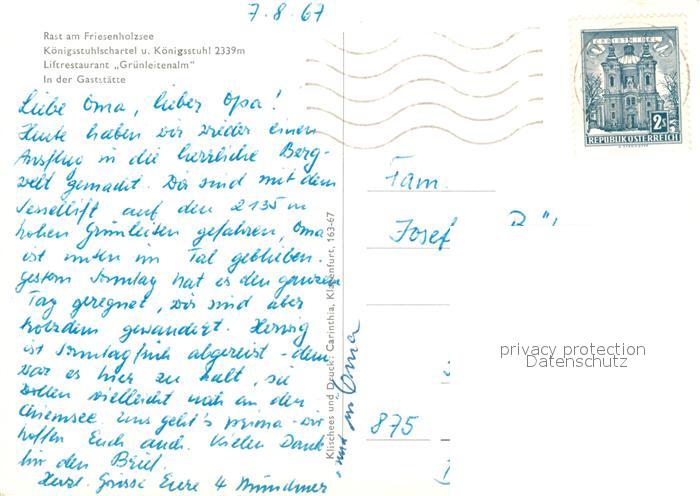 7.8.67
Rast am Friesenholzsee
Königsstuhlschartel u. Königsstuhl 2339m
Liftrestaurant „Grünleitenalm"
In der Gaststätte
Liebe Oma, lieber Opa!
Heute haben wir wieder einen
Ausflug in die herrliche Berg-
welt gemacht. Wir sind mit dem
Sessellift auf den 2135 m
hohen Grünleiten gefahren, Oma
ist unten im Tal geblieben.
Gestern Sonntag hat es den ganzen
Tag geregnet, wir sind aber
trotzdem gewandert. Herwig
ist Sonntag früh abgereist - dem
war es hier zu kalt, sie
wollen vielleicht noch an den
Chiemsee. Uns geht's prima - wir
hoffen Euch auch. Vielen Dank
für den Brief.
Herzl. Grüsse Eure 4 Münchner
und Oma
Klischees und Druck: Carinthia, Klagenfurt, 163-67
CHRISTKINDL
2 S
REPUBLIK ÖSTERREICH
Fam.
Josef
875
privacy protection
Datenschutz